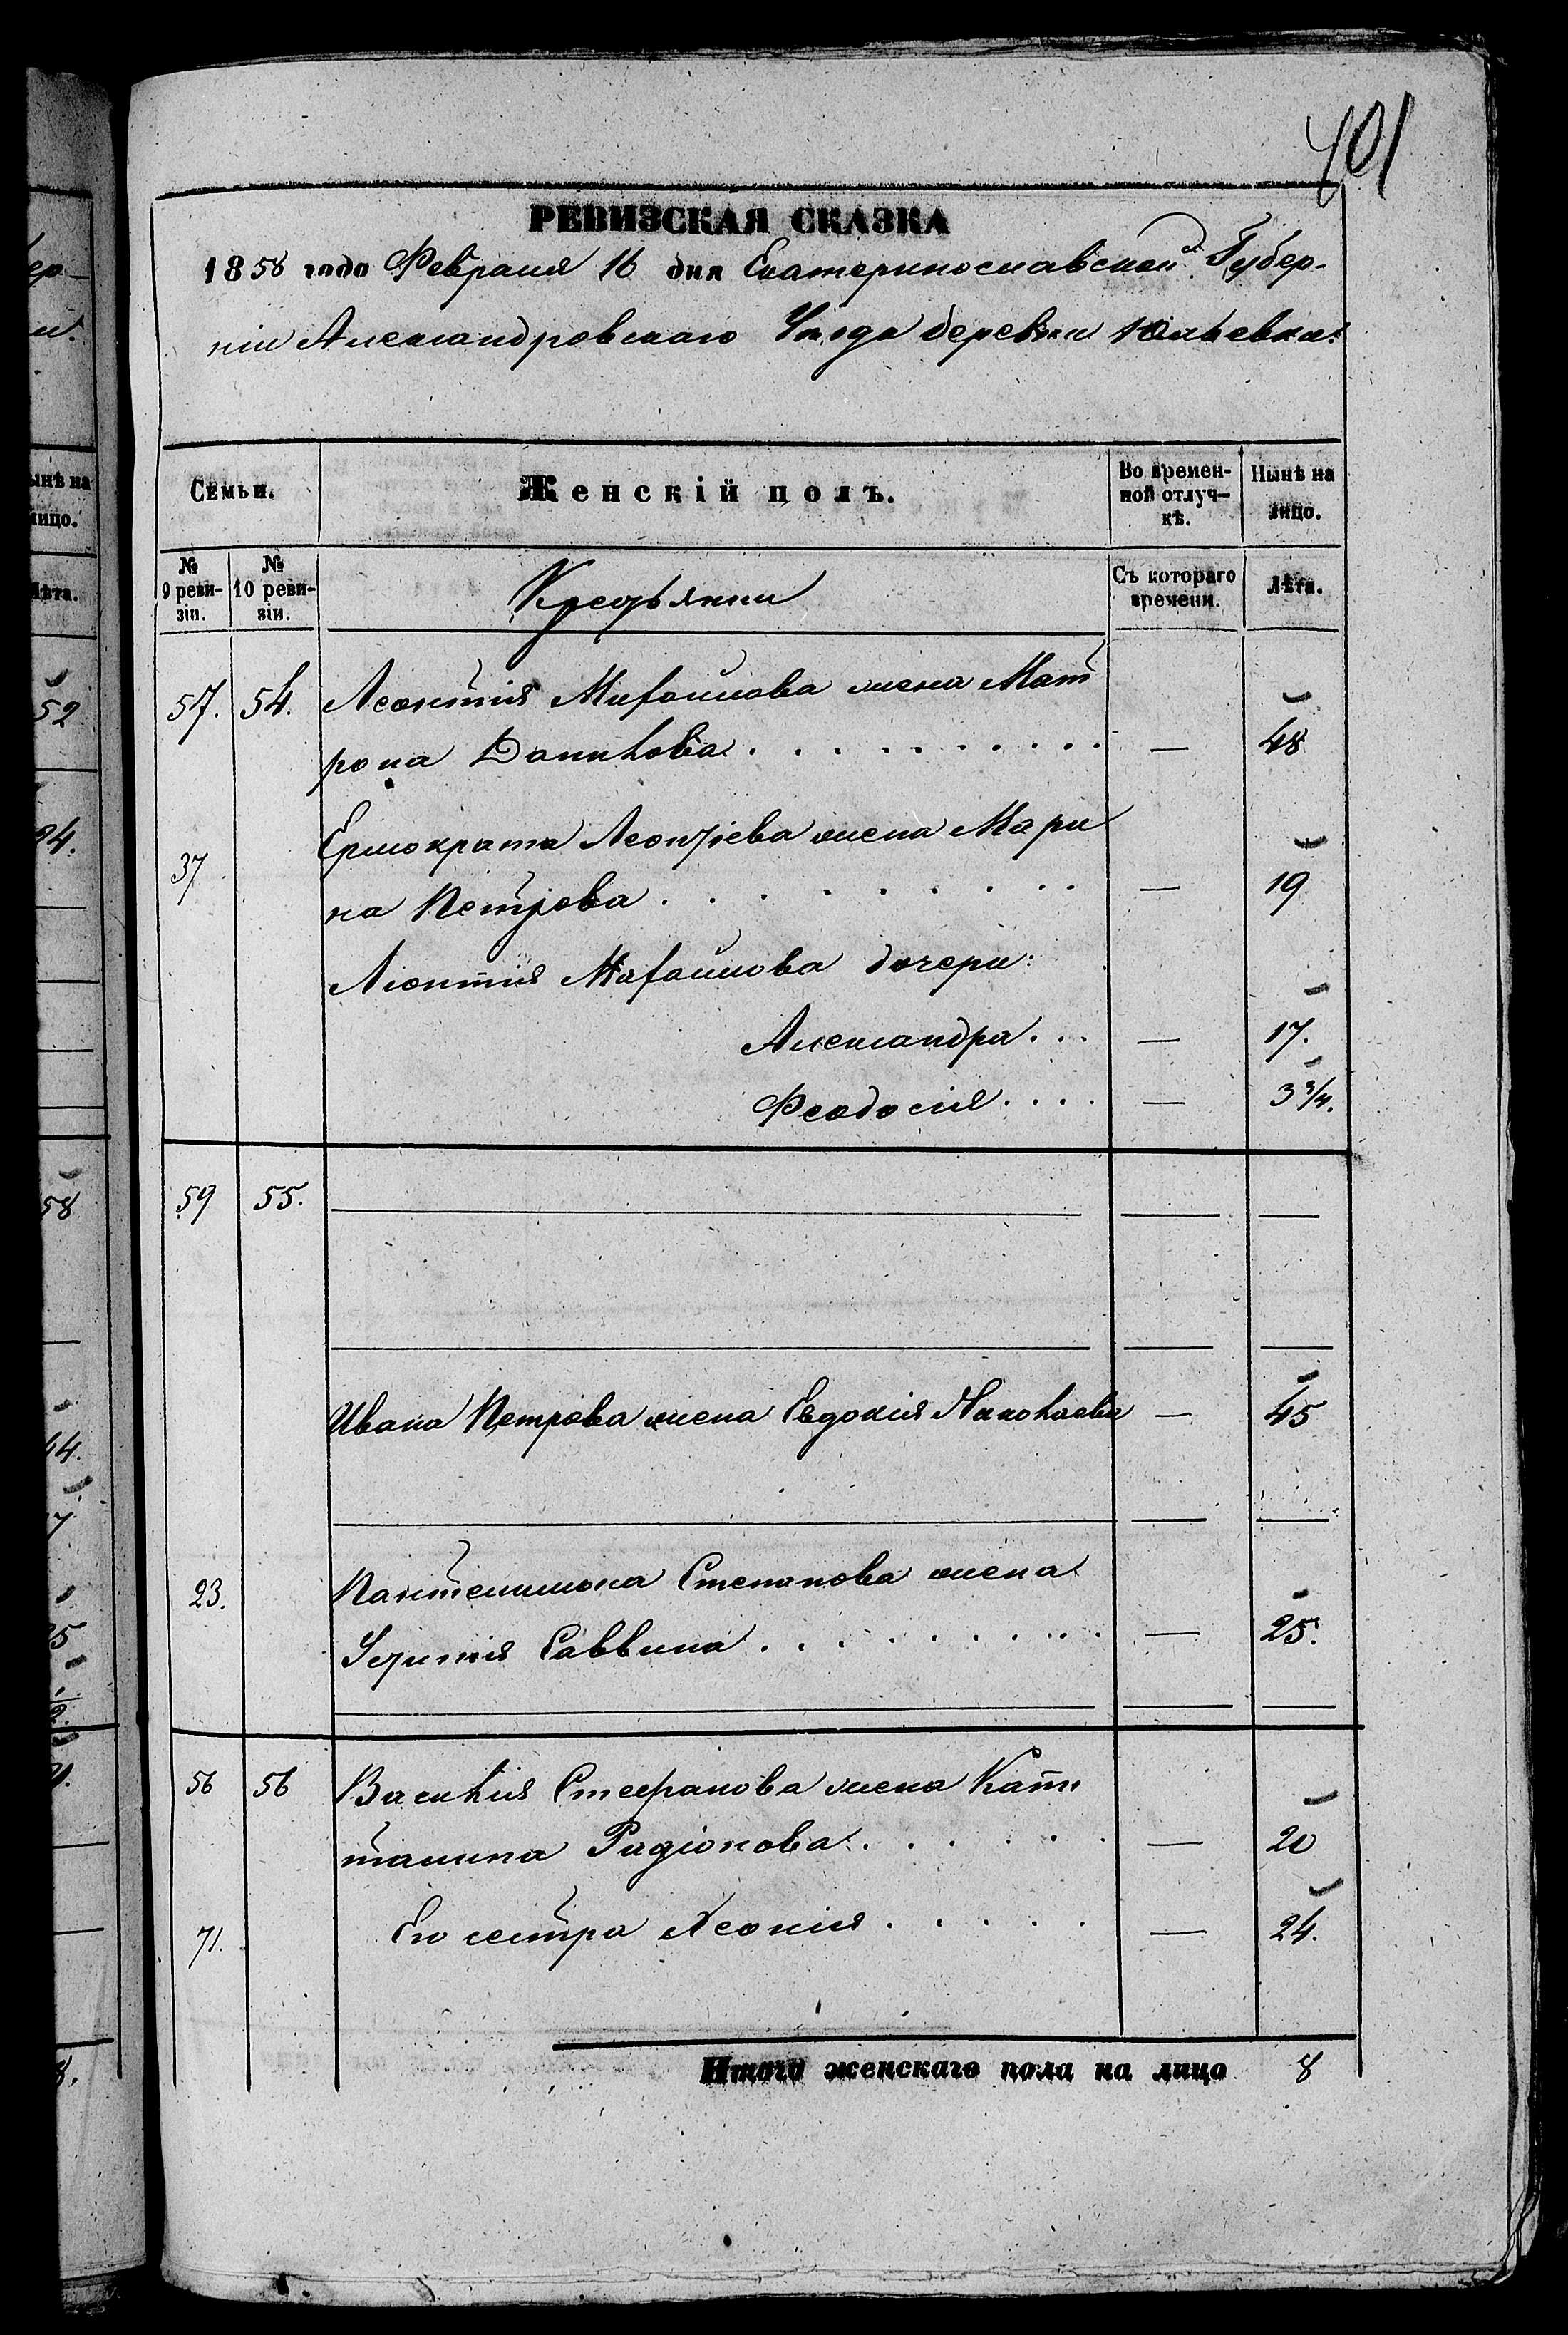 401
РЕВИЗСКАЯ СКАЗКА
1858 года Февраля 16 дня Екатеринославской Губер-
ніи Александровскаго Уѣзда деревни Юльевки:
Семьи. Женскій полъ. Во времен-ной отлуч-кѣ. Нынѣ на лицо.
№ 9 реви-зіи. № 10 реви-зіи. Крестьянки Съ котораго времени. Лѣта.
57. 54. Леонтія Михайлова жена Мат
рона Данилова . . . . . . . . . . — 48
Ермократа Леонтіева жена Мари
37
на Петрова . . . . . . . . . — 19
Леонтія Михайлова дочери:
Александра . . . — 17.
Феодосія . . . . — 3 3/4.
59 55.
Ивана Петрова жена Евдокія Николаева — 45
23. Пантелимона Степанова жена
Саввина . . . . . . . . . . — 25.
56 56 Василія Стефанова жена Капи
талина Радіонова . . . . . . — 20
71. Его сестра . . . . . — 24.
Итого женскаго пола на лицо 8
ынѣ на
лицо.
Лѣта.
52
24.
58
44.